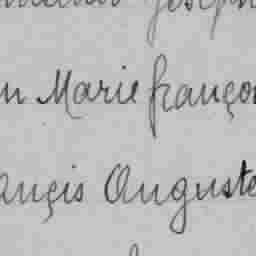 Joseph
Marie françoi
ançis Auguste